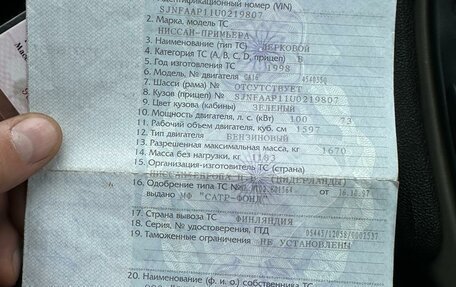 Идентификационный номер (VIN)
SJNFAAP11U0219807
2. Марка, модель ТС
НИССАН-ПРИМЬЕРА
3. Наименование (тип ТС) ЛЕГКОВОЙ
4. Категория ТС (A, B, C, D, прицеп) B
5. Год изготовления ТС 1998
6. Модель, № двигателя GA16
7. Шасси (рама) № ОТСУТСТВУЕТ
8. Кузов (прицеп) № SJNFAAP11U0219807
9. Цвет кузова (кабины) ЗЕЛЕНЫЙ
10. Мощность двигателя, л. с. (кВт) 100 73
11. Рабочий объем двигателя, куб. см 1597
12. Тип двигателя БЕНЗИНОВЫЙ
13. Разрешенная максимальная масса, кг 1670
14. Масса без нагрузки, кг
15. Организация-изготовитель ТС (страна)
(НИДЕРЛАНДЫ)
16. Одобрение типа ТС № от 16.10.97
выдано МФ "САТР-ФОНД"
17. Страна вывоза ТС ФИНЛЯНДИЯ
18. Серия, № удостоверения, ГТД
19. Таможенные ограничения НЕ УСТАНОВЛЕНЫ
20. Наименование (ф. и. о.) собственника ТС